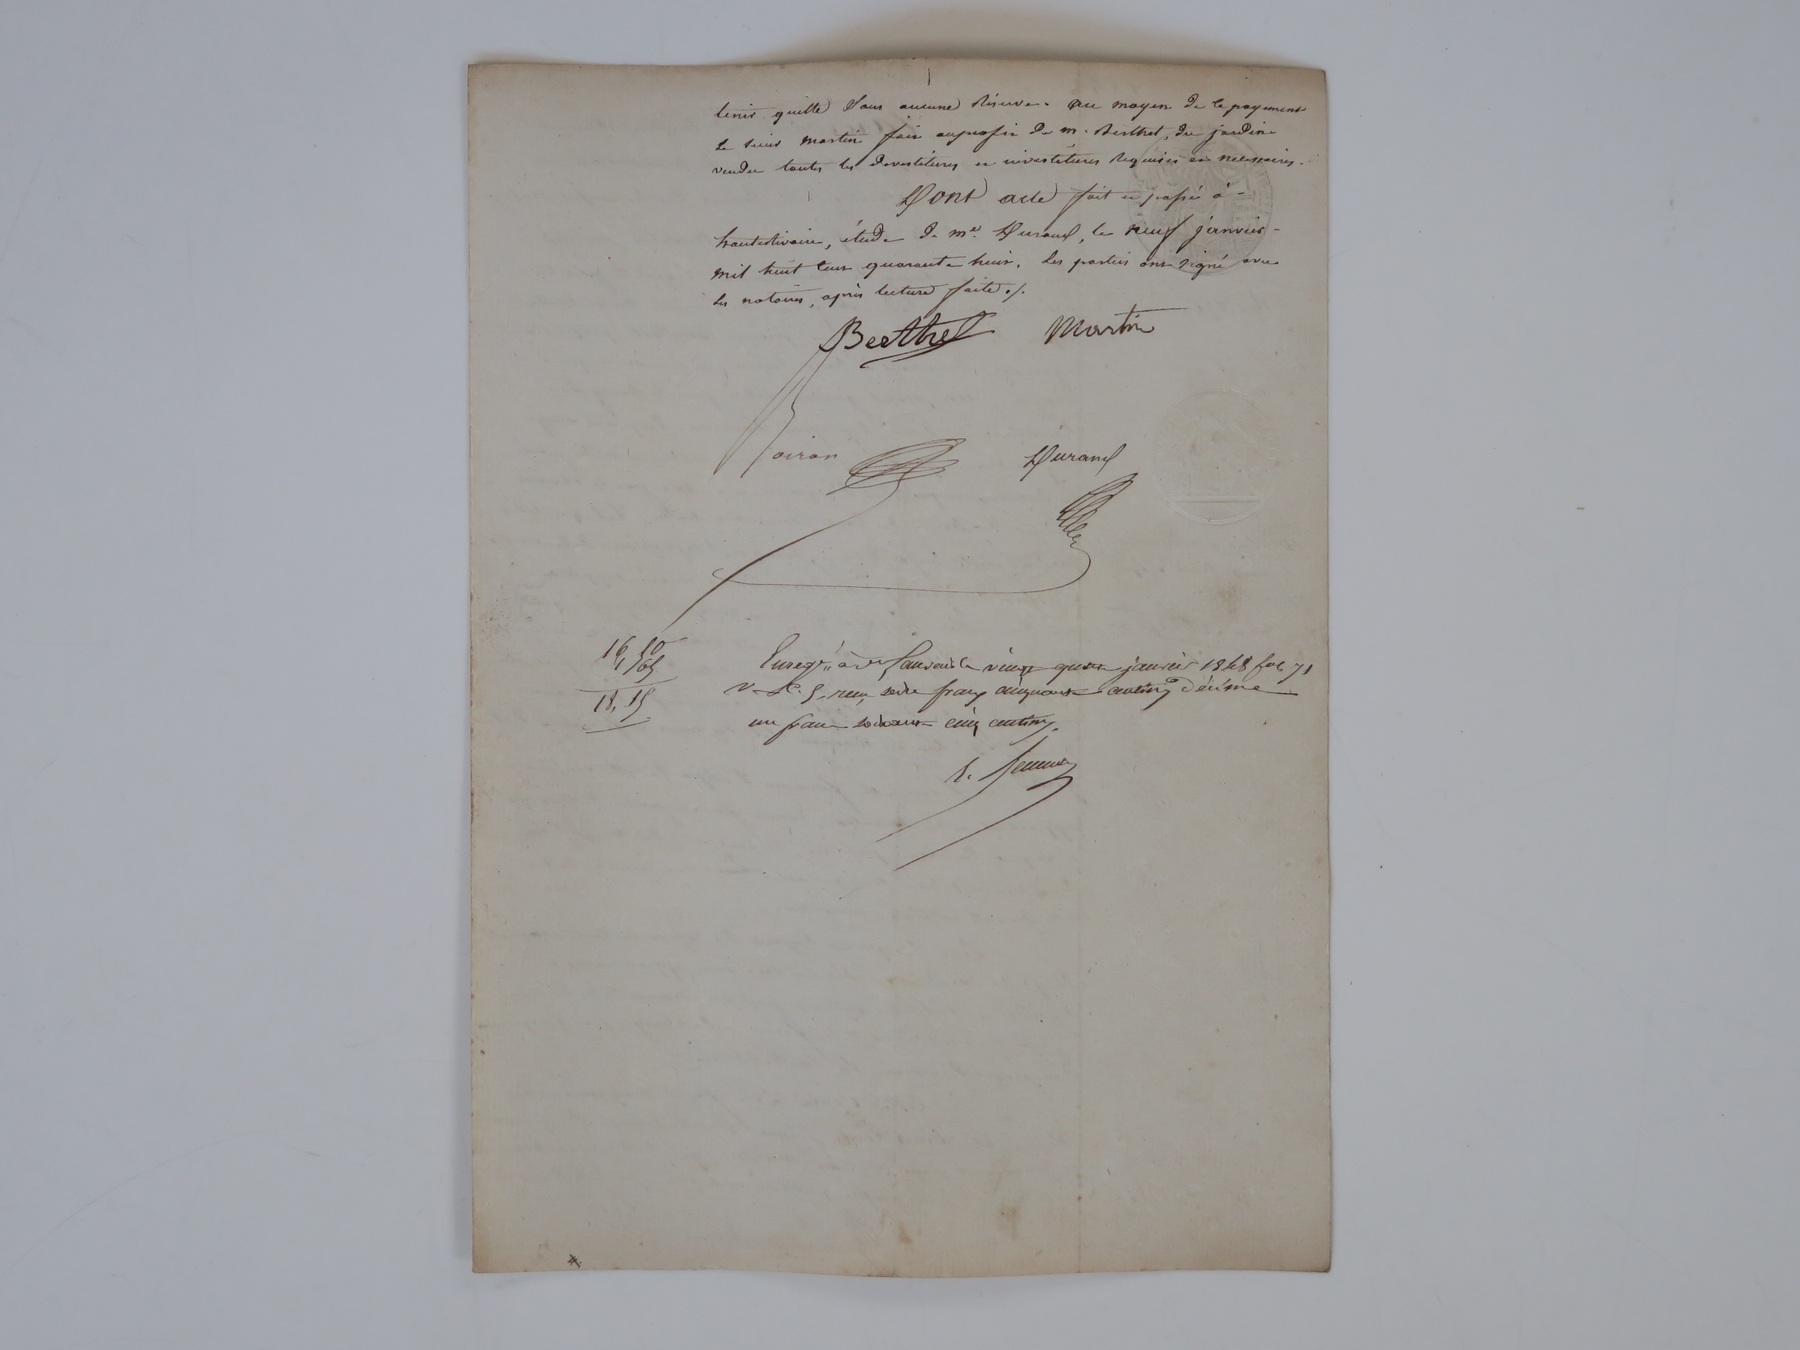 tenir quitte sans aucune réserve. au moyen de ce payement
le sieur martin fait au profit de m. Berthet, du jardin
vendu toutes les devestitures et investitures requises et nécessaires.
Dont acte fait et passé à
hauterivoire, étude de me. Durand, le neuf janvier
mil huit cent quarante huit. Les parties ont signé avec
les notaires, après lecture faite./.
Berthet Martin
Boiron Durand
16, 50
1, 65
18, 15
Enregé. à vingt quatre janvier 1848 fol. 71
v. c. 5, reçu seize francs cinquante centimes décime
un franc soixante cinq centimes.